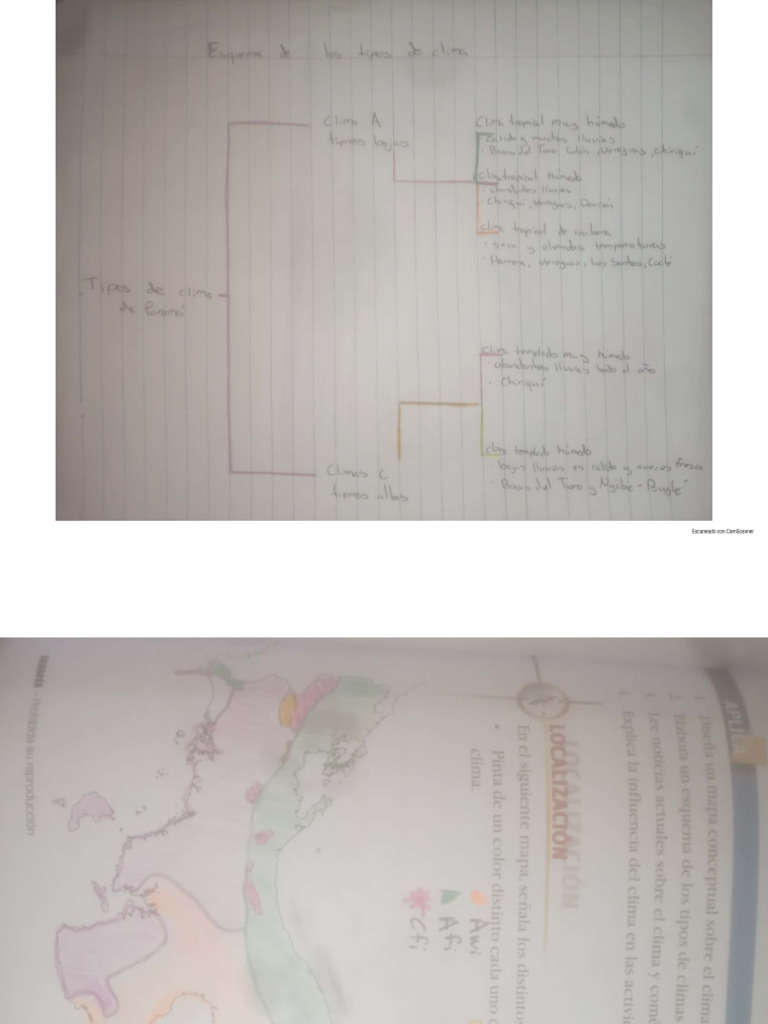 Esquema de los tipos de clima
Tipos de clima
de Panamá
Clima A
tierras bajas
Clima tropical muy húmedo
Calido y muchas lluvias
Bocas del Toro, Colón, Veraguas, Chiriquí
Clima tropical húmedo
abundantes lluvias
Chiriquí, Veraguas, Darién
Clima tropical de
seco y elevadas temperaturas
Herrera, Veraguas, Los Santos, Coclé
Climas C
tierras altas
Clima templado muy húmedo
abundantes lluvias todo el año
Chiriquí
Clima templado húmedo
bajas lluvias es calido y fresca
Bocas del Toro y Ngäbe-Buglé
Escaneado con CamScanner
APLICA
1. Diseña un mapa conceptual sobre el clima
2. Elabora un esquema de los tipos de climas
3. Lee noticias actuales sobre el clima y com
4. Explica la influencia del clima en las activi
LOCALIZACIÓN
En el siguiente mapa, señala los distintos
• Pinta de un color distinto cada uno
clima.
Awi
Afi
Cfi
Prohibida su reproducción